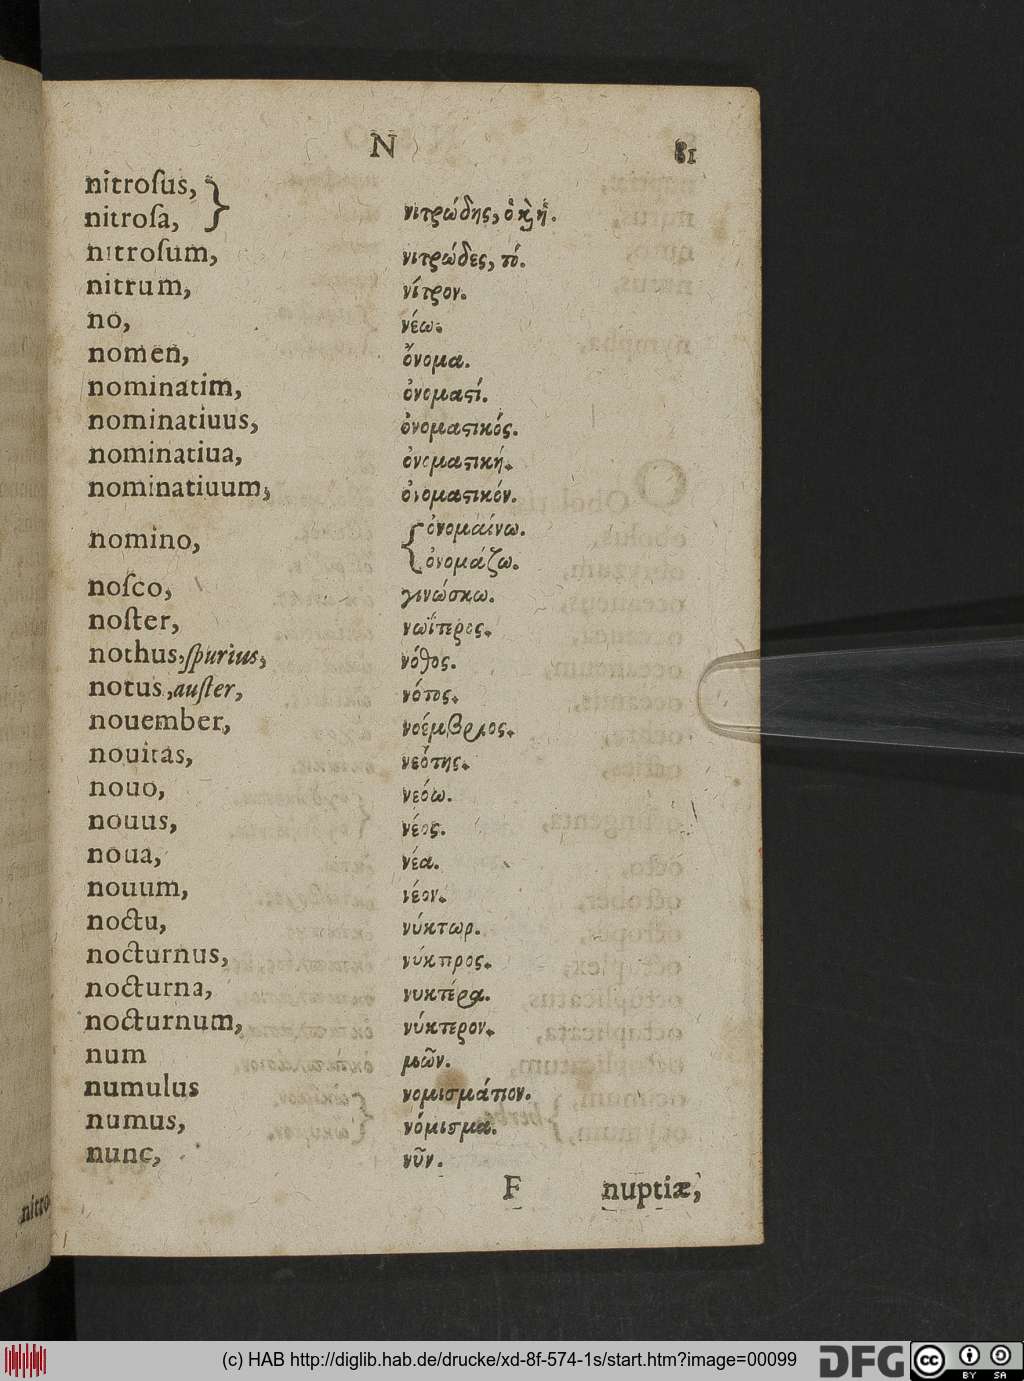 N 81
nitroſus, }
nitroſa, } νιτρώδης, ὁ κ̀ ἡ.
nitroſum, νιτρώδες, τό.
nitrum, νίτρον.
no, νέω.
nomen, ὄνομα.
nominatim, ὀνομαϛί.
nominatiuus, ὀνομαϛικός.
nominatiua, ὀνομαϛική.
nominatiuum, ὀνομαϛικόν.
nomino, { ὀνομαίνω.
{ ὀνομάζω.
noſco, γινώσκω.
noſter, νωΐτερος.
nothus, ſpurius, νόθος.
notus, auſter, νότος.
nouember, νοέμβριος.
nouitas, νεότης.
nouo, νεόω.
nouus, νέος.
noua, νέα.
nouum, νέον.
noctu, νύκτωρ.
nocturnus, νύκτερος.
nocturna, νυκτέρα.
nocturnum, νύκτερον.
num μῶν.
numulus νομισμάτιον.
numus, νόμισμα.
nunc, νῦν.
F nuptiæ,
nitro
(c) HAB http://diglib.hab.de/drucke/xd-8f-574-1s/start.htm?image=00099
DFG cc BY SA